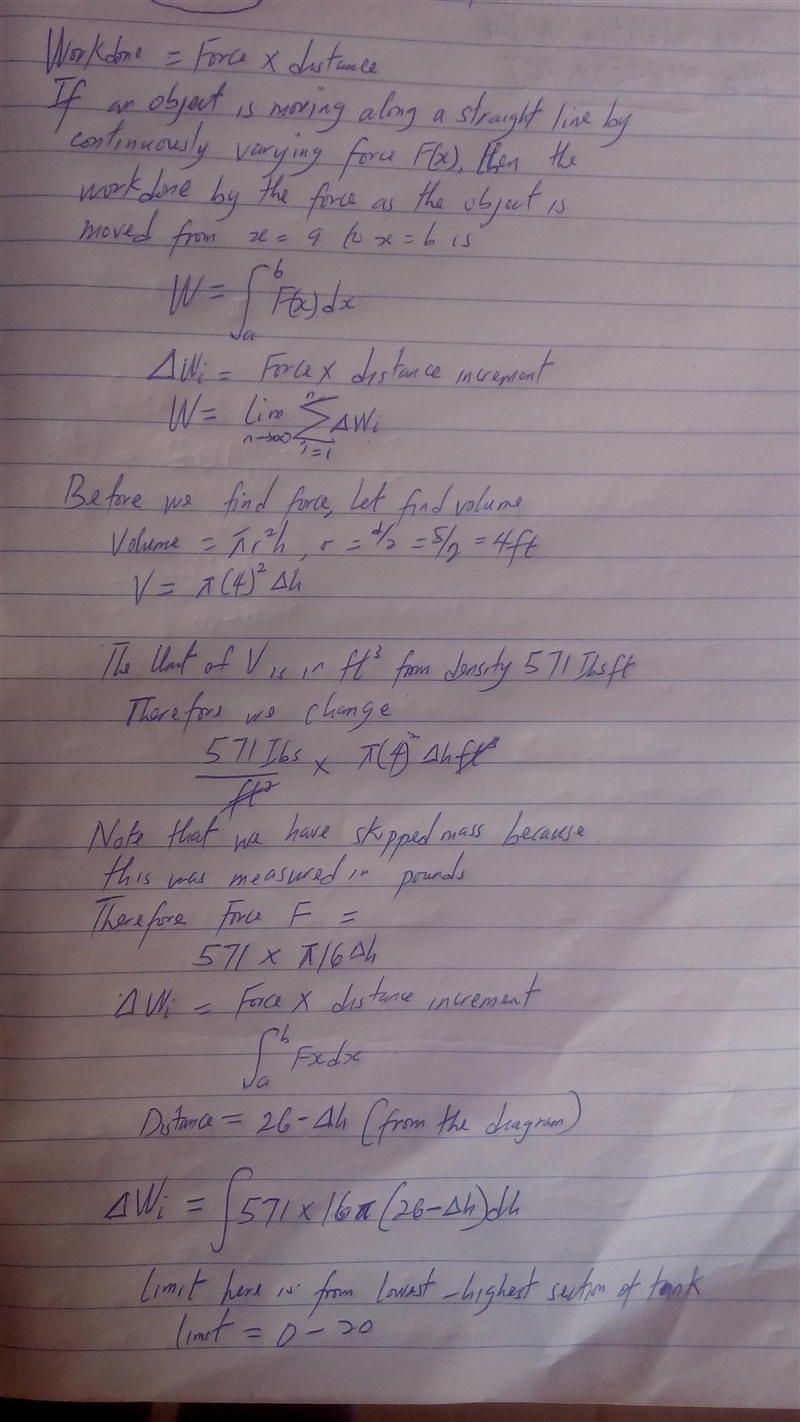 Workdone = Force x distance
If an object is moving along a straight line by
continuously varying force F(x), then the
workdone by the force as the object is
moved from x = a to x = b is
W = ∫_a^b F(x) dx
ΔWi = Force x distance increment
W = lim_{n→∞} Σ_{i=1}^{n} ΔWi
Before we find force, Let find volume
Volume = πr²h, r = d/2 = 8/2 = 4ft
V = π(4)² Δh
The Unit of V is in ft³ from density 571 Ibsft
Therefore we change
571 Ibs/ft³ x π(4)² Δh ft³
Note that we have skipped mass because
this was measured in pounds
Therefore Force F =
571 x π16Δh
ΔWi = Force x distance increment
∫_a^b Fxdx
Distance = 26 - Δh (from the diagram)
ΔWi = ∫571 x 16π (26 - Δh) dh
limit here is from lowest - highest section of tank
limit = 0 - 20